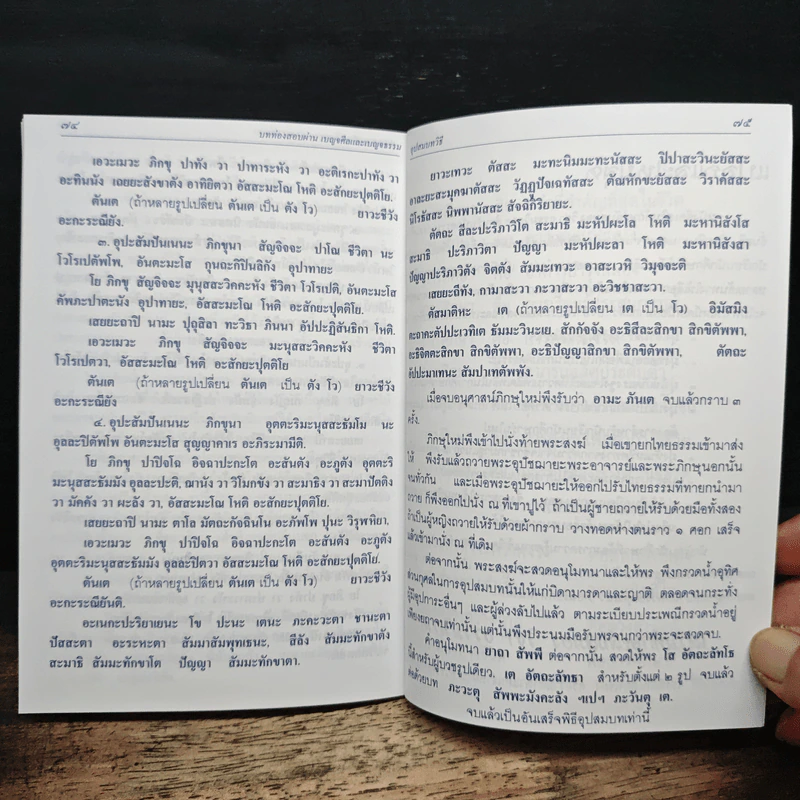 ๗๔ บทท่องสอบผ่าน เบญจศีลและเบญจธรรม
เอวะเมวะ ภิกขุ ปาทัง วา ปาทาระหัง วา อะติเรกะปาทัง วา
อะทินนัง เถยยะสังขาตัง อาทิยิตวา อัสสะมะโณ โหติ อะสักยะปุตติโย.
ตันเต (ถ้าหลายรูปเปลี่ยน ตันเต เป็น ตัง โว) ยาวะชีวัง
อะกะระณียัง.
๓. อุปะสัมปันเนนะ ภิกขุนา สัญจิจจะ ปาโณ ชีวิตา นะ
โวโรเปตัพโพ, อันตะมะโส กุนถะกิปิลลิกัง อุปาทายะ
โย ภิกขุ สัญจิจจะ มนุสสะวิคคะหัง ชีวิตา โวโรเปติ, อันตะมะโส
คัพภะปาตะนัง อุปาทายะ, อัสสะมะโณ โหติ อะสักยะปุตติโย.
เสยยะถาปิ นามะ ปุถุสิลา ทะวิธา ภินนา อัปปะฏิสันธิกา โหติ.
เอวะเมวะ ภิกขุ สัญจิจจะ มะนุสสะวิคคะหัง ชีวิตา
โวโรเปตวา, อัสสะมะโณ โหติ อะสักยะปุตติโย
ตันเต (ถ้าหลายรูปเปลี่ยน ตันเต เป็น ตัง โว) ยาวะชีวัง
อะกะระณียัง
๔. อุปะสัมปันเนนะ ภิกขุนา อุตตะริมะนุสสะธัมโม นะ
อุลละปิตัพโพ อันตะมะโส สุญญาคาเร อะภิระมามีติ.
โย ภิกขุ ปาปิจโฉ อิจฉาปะกะโต อะสันตัง อะภูตัง อุตตะริ
มะนุสสะธัมมัง อุลละปะติ, ฌานัง วา วิโมกขัง วา สะมาธิง วา สะมาปัตติง
วา มัคคัง วา ผะลัง วา, อัสสะมะโณ โหติ อะสักยะปุตติโย.
เสยยะถาปิ นามะ ตาโล มัตถะกัจฉินโน อะภัพโพ ปุนะ วิรุพหิยา.
เอวะเมวะ ภิกขุ ปาปิจโฉ อิจฉาปะกะโต อะสันตัง อะภูตัง
อุตตะริมะนุสสะธัมมัง อุลละปิตวา อัสสะมะโณ โหติ อะสักยะปุตติโย.
ตันเต (ถ้าหลายรูปเปลี่ยน ตันเต เป็น ตัง โว) ยาวะชีวัง
อะกะระณียันติ.
อะเนกะปะริยาเยนะ โข ปะนะ เตนะ ภะคะวะตา ชานะตา
ปัสสะตา อะระหะตา สัมมาสัมพุทเธนะ, สีลัง สัมมะทักขาตัง
สะมาธิ สัมมะทักขาโต ปัญญา สัมมะทักขาตา.
อุปสมบทวิธี ๗๕
ยาวะเทวะ ตัสสะ มะทะนิมมะทะนัสสะ ปิปาสะวินะยัสสะ
อาละยะสะมุคฆาตัสสะ วัฏฏูปัจเฉทัสสะ ตัณหักขะยัสสะ วิราคัสสะ
นิโรธัสสะ นิพพานัสสะ สัจฉิกิริยายะ.
ตัตถะ สีละปะริภาวิโต สะมาธิ มะหัปผะโล โหติ มะหานิสังโส
สะมาธิ ปะริภาวิตา ปัญญา มะหัปผะลา โหติ มะหานิสังสา
ปัญญาปะริภาวิตัง จิตตัง สัมมะเทวะ อาสะเวหิ วิมุจจะติ
เสยยะถีทัง, กามาสะวา ภะวาสะวา อะวิชชาสะวา.
ตัสมาติหะ เต (ถ้าหลายรูปเปลี่ยน เต เป็น โว) อิมัสมิง
ตะถาคะตัปปะเวทิเต ธัมมะวินะเย. สักกัจจัง อะธิสีละสิกขา สิกขิตัพพา,
อะธิจิตตะสิกขา สิกขิตัพพา, อะธิปัญญาสิกขา สิกขิตัพพา, ตัตถะ
อัปปะมาเทนะ สัมปาเทตัพพัง.
เมื่อจบอนุศาสน์ภิกษุใหม่พึงรับว่า อามะ ภันเต จบแล้วกราบ ๓
ครั้ง.
ภิกษุใหม่พึงเข้าไปนั่งท้ายพระสงฆ์ เมื่อเขายกไทยธรรมเข้ามาส่ง
ให้ พึงรับแล้วถวายพระอุปัชฌายะพระอาจารย์และพระภิกษุนอกนั้น
จนทั่วกัน และเมื่อพระอุปัชฌายะให้ออกไปรับไทยธรรมที่ทายกนำมา
ถวาย ก็พึงออกไปนั่ง ณ ที่เขาปูไว้ ถ้าเป็นผู้ชายถวายให้รับด้วยมือทั้งสอง
ถ้าเป็นผู้หญิงถวายให้รับด้วยผ้ากราบ วางทอดห่างตนราว ๑ ศอก เสร็จ
แล้วเข้ามานั่ง ณ ที่เดิม
ต่อจากนั้น พระสงฆ์จะสวดอนุโมทนาและให้พร พึงกรวดน้ำอุทิศ
ส่วนกุศลในการอุปสมบทนั้นให้แก่บิดามารดาและญาติ ตลอดจนกระทั่ง
ผู้มีอุปการะอื่นๆ และผู้ล่วงลับไปแล้ว ตามระเบียบประเพณีกรวดน้ำอยู่
เพียงยถาจบเท่านั้น แต่นั้นพึงประนมมือรับพรจนกว่าพระจะสวดจบ.
คำอนุโมทนา ยาถา สัพพี ต่อจากนั้น สวดให้พร โส อัตถะลัทโธ
นี้สำหรับผู้บวชรูปเดียว, เต อัตถะลัทธา สำหรับตั้งแต่ ๒ รูป จบแล้ว
ต่อด้วยบท ภะวะตุ สัพพะมังคะลัง ฯเปฯ ภะวันตุ เต.
จบแล้วเป็นอันเสร็จพิธีอุปสมบทเท่านี้